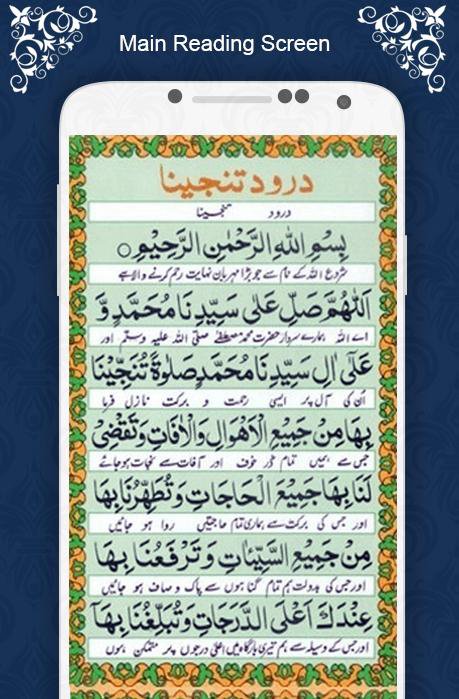 Main Reading Screen
درود تنجینا
درود تنجینا
بِسْمِ اللهِ الرَّحْمٰنِ الرَّحِيْمِ
شروع اللہ کے نام سے جو بڑا مہربان نہایت رحم کرنے والا ہے
اَللّٰهُمَّ صَلِّ عَلٰى سَيِّدِنَا مُحَمَّدٍ وَّ
اے اللہ ہمارے سردار حضرت محمد مصطفےٰ صلی اللہ علیہ وسلم اور
عَلٰٓى اٰلِ سَيِّدِنَا مُحَمَّدٍ صَلٰوةً تُنَجِّيْنَا
اُن کی آل پر ایسی رحمت و برکت نازل فرما
بِهَا مِنْ جَمِيْعِ الْاَهْوَالِ وَالْاٰفَاتِ وَتَقْضِىْ
جس سے ہمیں تمام ڈر خوف اور آفات سے نجات ہوجائے
لَنَا بِهَا جَمِيْعَ الْحَاجَاتِ وَتُطَهِّرُنَا بِهَا
اور جس کی برکت سے ہماری تمام حاجتیں روا ہو جائیں
مِنْ جَمِيْعِ السَّيِّاٰتِ وَتَرْفَعُنَا بِهَا
اور جس کی بدولت ہم تمام گناہوں سے پاک و صاف ہو جائیں
عِنْدَكَ اَعْلَى الدَّرَجَاتِ وَتُبَلِّغُنَا بِهَآ
اور جس کے وسیلہ سے ہم تیری بارگاہ میں اعلیٰ درجوں پر متمکن ہوں